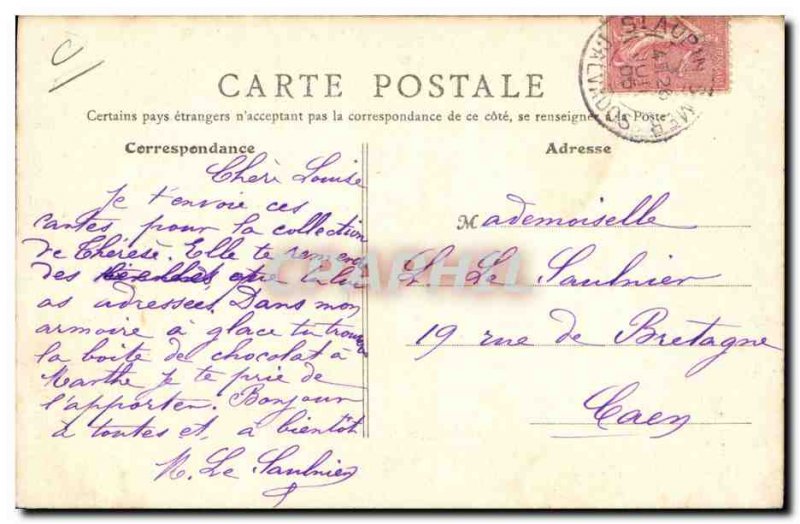 CARTE POSTALE
Certains pays étrangers n'acceptant pas la correspondance de ce côté, se renseigner à la Poste
Correspondance
Adresse
Chèri Louise
Je t'envoie ces
cartes pour la collection
de Thérèse. Elle te remercie
des que tu lui
as adressees. Dans mon
armoire à glace tu trouveras
la boite de chocolat à
Marthe je te prie de
l'apporter. Bonjour
à toutes et, à bientôt
M. Le Saulnier
Mademoiselle
L. Le Saulnier
19 rue de Bretagne
Caen
ST AUBIN S MER
CALVADOS
CPAPHIL